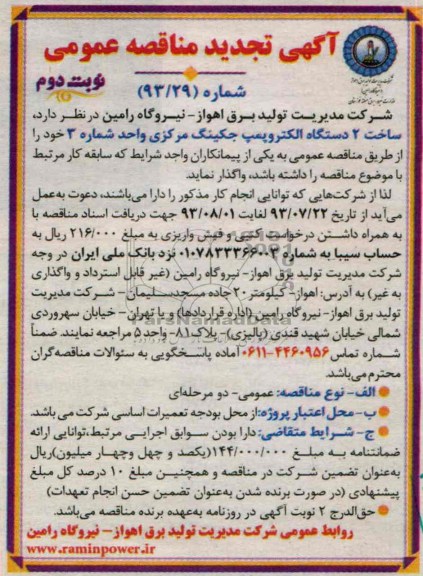 آگهی تجدید مناقصه عمومی
شماره (۹۳/۲۹)
نوبت دوم
شرکت مدیریت تولید برق اهواز- نیروگاه رامین در نظر دارد،
ساخت ۲ دستگاه الکتروپمپ جکینگ مرکزی واحد شماره ۳ خود را
از طریق مناقصه عمومی به یکی از پیمانکاران واجد شرایط که سابقه کار مرتبط
با موضوع مناقصه را داشته باشد، واگذار نماید.
لذا از شرکت‌هایی که توانایی انجام کار مذکور را دارا می‌باشند، دعوت به‌عمل
می‌آید از تاریخ ۹۳/۰۷/۲۲ لغایت ۹۳/۰۸/۰۱ جهت دریافت اسناد مناقصه با
به همراه داشتن درخواست کتبی و فیش واریزی به مبلغ ۲۱۶/۰۰۰ ریال به
حساب سیبا به شماره ۰۱۰۷۸۳۳۳۶۶۰۰۳ نزد بانک ملی ایران در وجه
شرکت مدیریت تولید برق اهواز- نیروگاه رامین (غیر قابل استرداد و واگذاری
به غیر) به آدرس: اهواز- کیلومتر ۲۰ جاده مسجدسلیمان- شرکت مدیریت
تولید برق اهواز- نیروگاه رامین (اداره قراردادها) و یا تهران- خیابان سهروردی
شمالی خیابان شهید قندی (پالیزی)- پلاک ۸۱- واحد ۵ مراجعه نمایند. ضمناً
شماره تماس ۴۴۶۰۹۵۶-۰۶۱۱ آماده پاسخگویی به سئوالات مناقصه‌گران
محترم می‌باشد.
الف- نوع مناقصه: عمومی- دو مرحله‌ای
ب- محل اعتبار پروژه: از محل بودجه تعمیرات اساسی شرکت می باشد.
ج- شرایط متقاضی: دارا بودن سوابق اجرایی مرتبط، توانایی ارائه
ضمانتنامه به مبلغ ۱۴۴/۰۰۰/۰۰۰ (یکصد و چهل وچهار میلیون) ریال
به‌عنوان تضمین شرکت در مناقصه و همچنین مبلغ ۱۰ درصد کل مبلغ
پیشنهادی (در صورت برنده شدن به‌عنوان تضمین حسن انجام تعهدات)
حق‌الدرج ۲ نوبت آگهی در روزنامه به‌عهده برنده مناقصه می‌باشد.
روابط عمومی شرکت مدیریت تولید برق اهواز- نیروگاه رامین
www.raminpower.ir